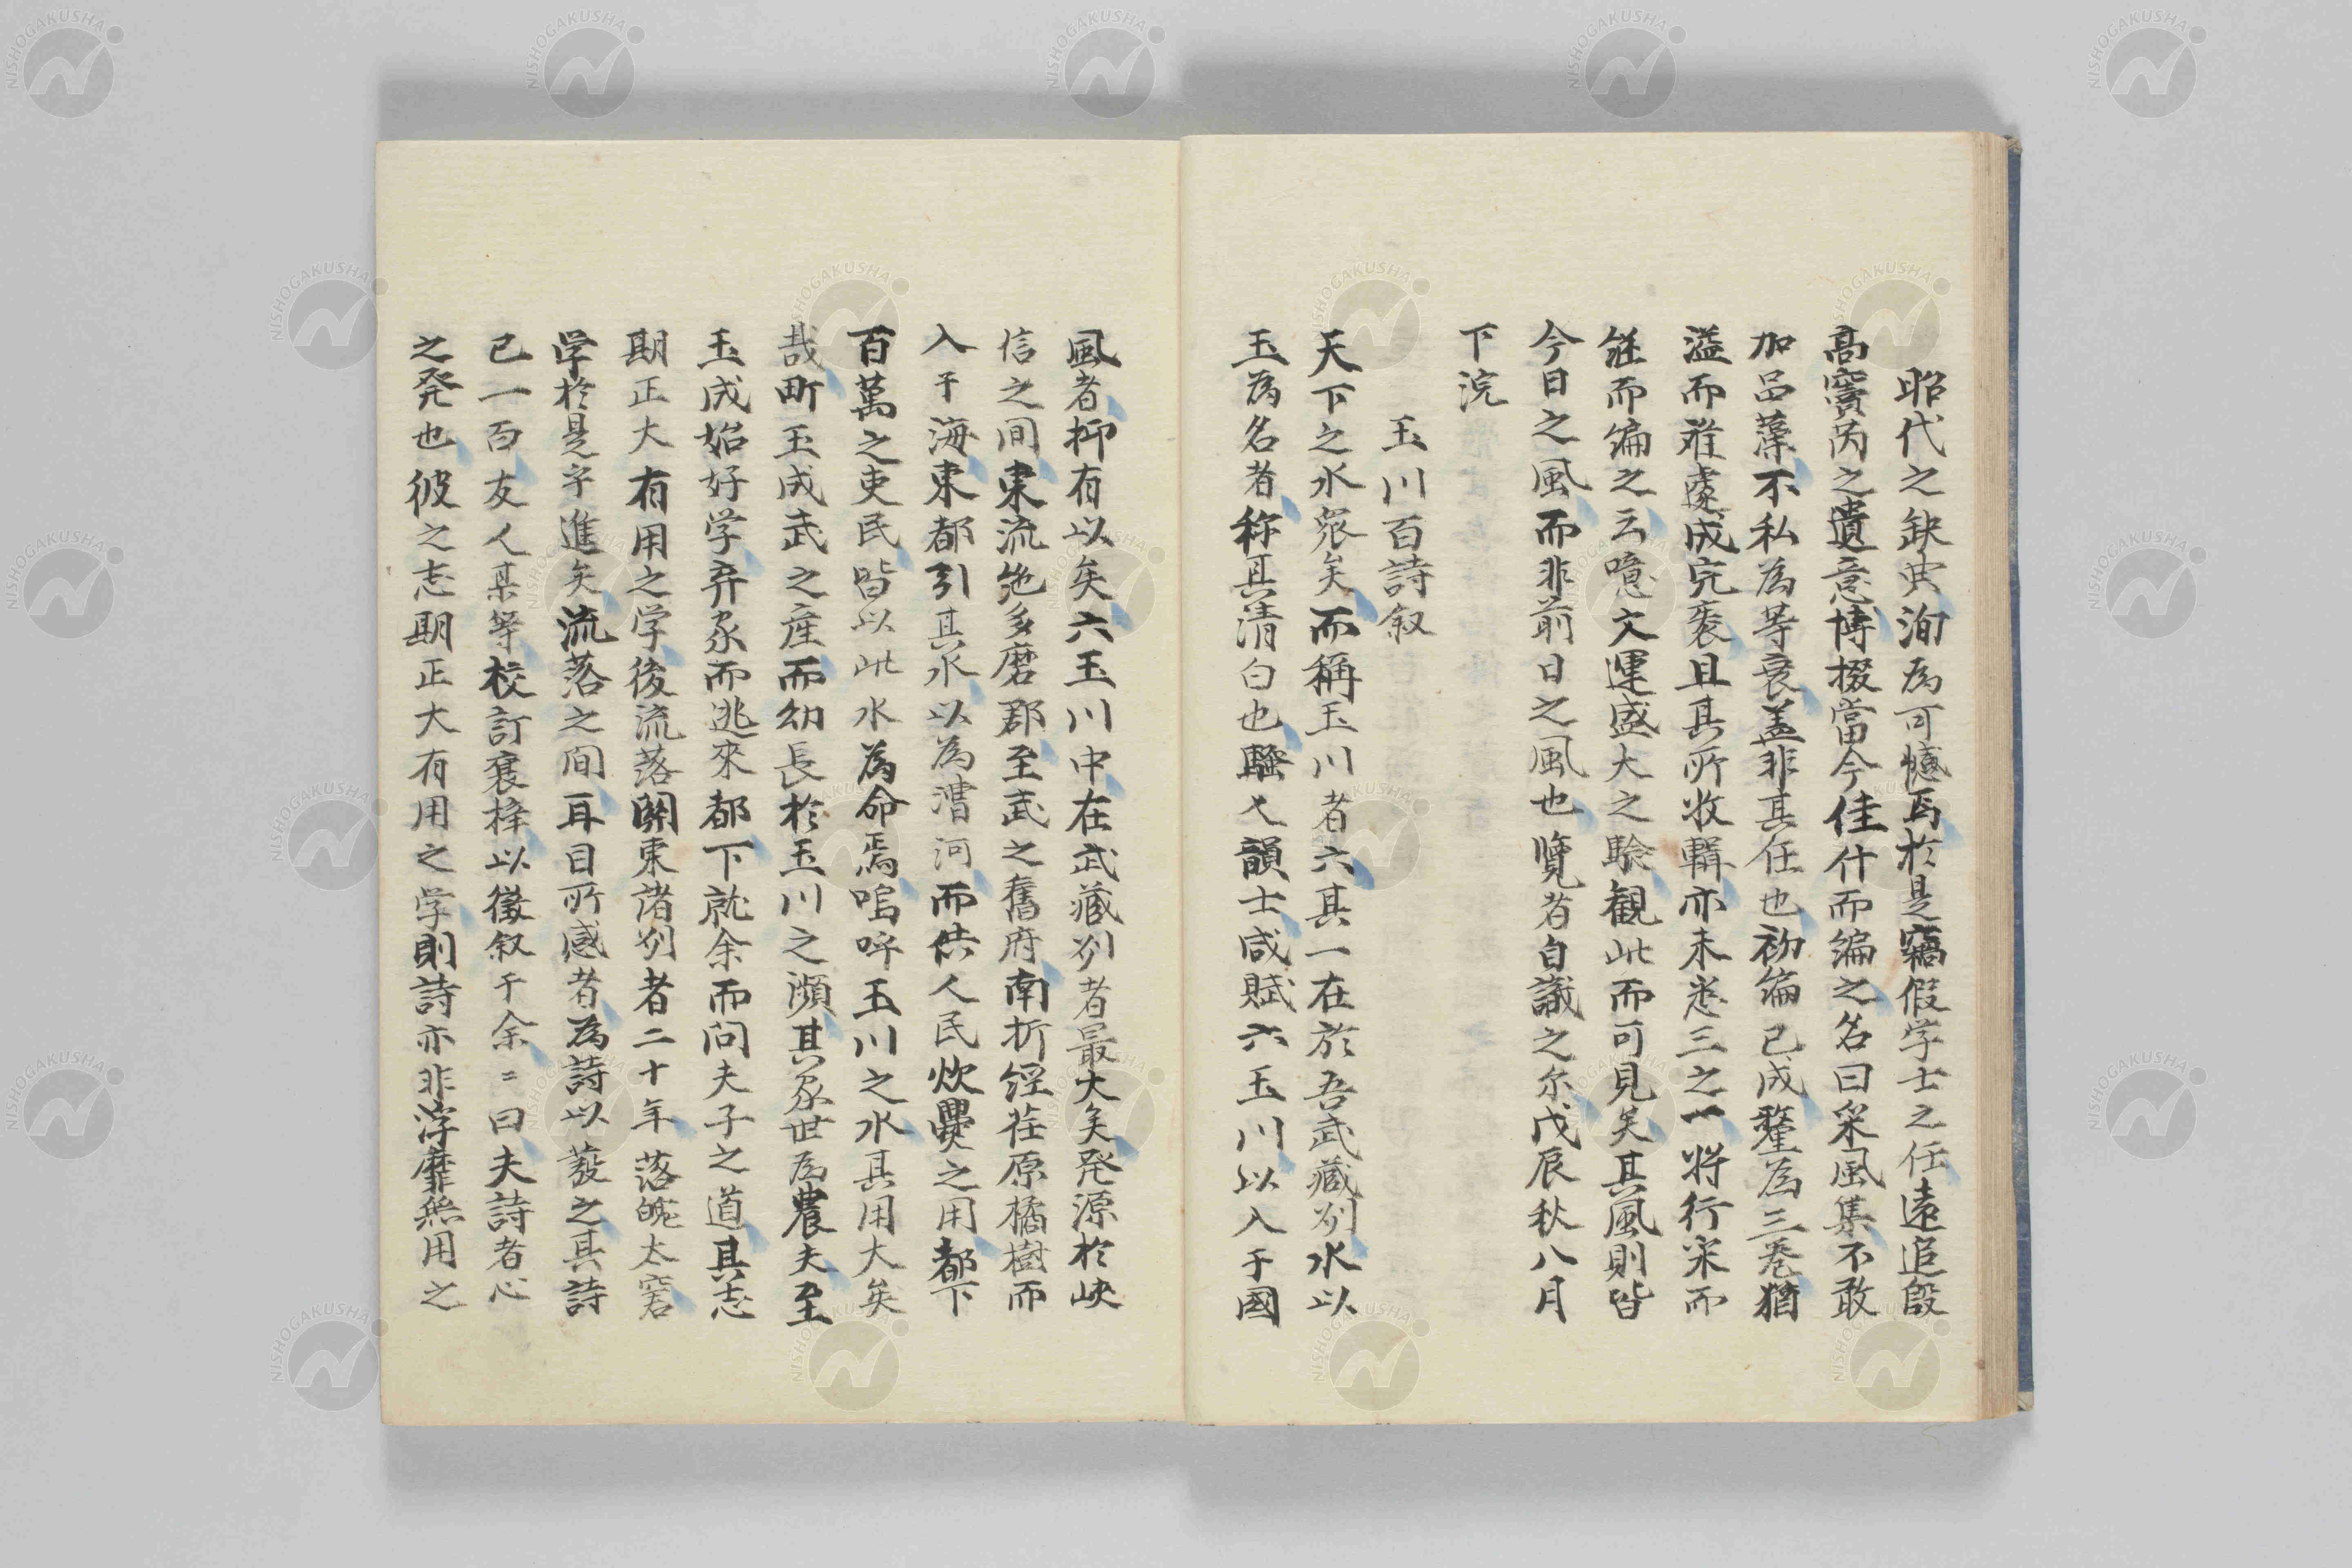 昭代之缺典洵為可憾焉於是竊假学士之任遠追殷
高竇芮之遺意博掇當今佳什而編之名曰采風集不敢
加品藻不私為等衰盖非其任也初編已成釐為三卷猶
溢而難處成完袠且其所收輯亦未悉三之一将行采而
継而編之云噫文運盛大之験観此而可見矣其風則皆
今日之風而非前日之風也覧者自識之尓戊辰秋八月
下浣
玉川百詩叙
天下之水衆矣而稱玉川者六其一在於吾武蔵州水以
玉為名者称其清白也騒人韻士咸賦六玉川以入于國
風者抑有以矣六玉川中在武蔵州者最大矣発源於峡
信之間東流絶多磨郡至武之舊府南折経荏原橘樹而
入于海東都引其水以為漕河而供人民炊爨之用都下
百萬之吏民皆以此水為命焉嗚呼玉川之水其用大矣
哉町玉成武之産而幼長於玉川之瀕其家世為農夫至
玉成始好学弃家而逃來都下就余而问夫子之道其志
期正大有用之学後流落関東諸州者二十年落魄太窘
学於是乎進矣流落之间耳目所感者為詩以發之其詩
已一百友人某等校訂褎梓以徴叙于余〻曰夫詩者心
之発也彼之志期正大有用之学則詩亦非浮靡無用之